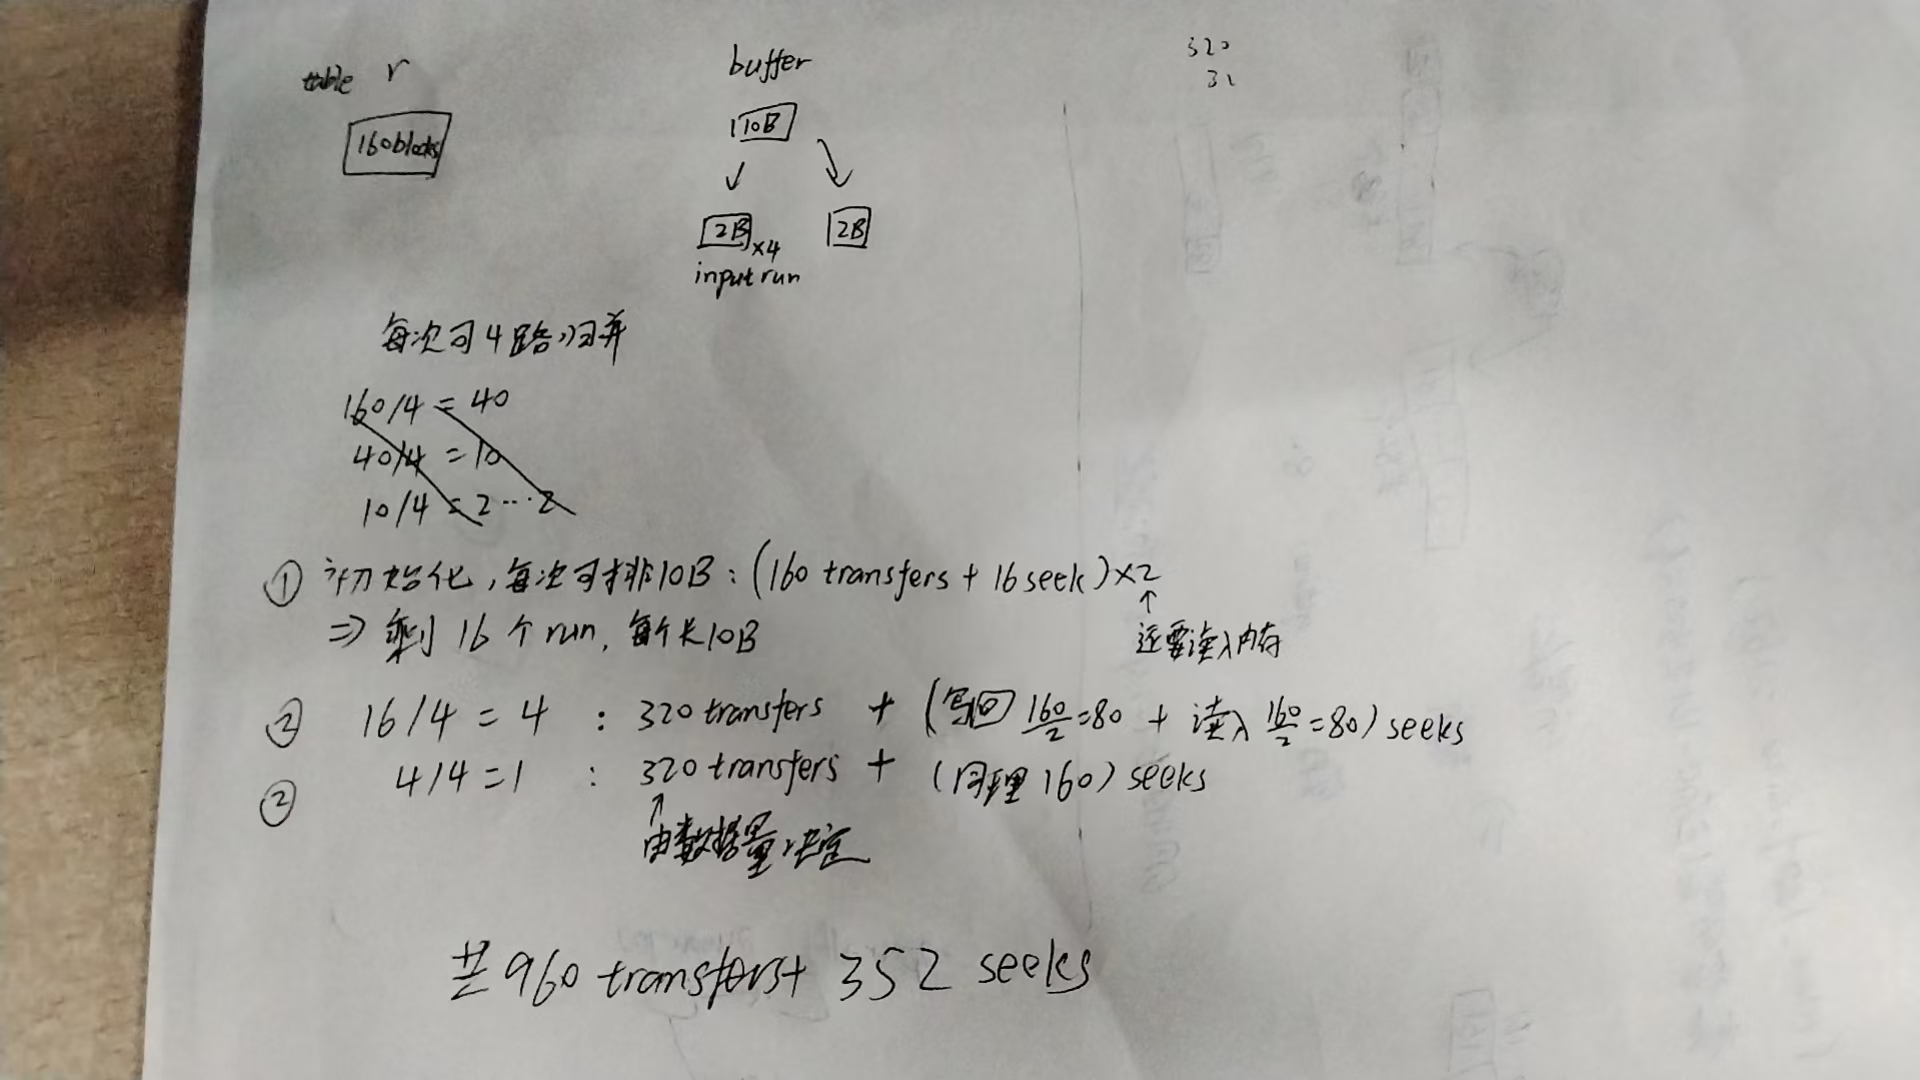 table r
160blocks
buffer
10B
2B ×4
2B
input run
320
32
每次可4路归并
160/4 = 40
40/4 = 10
10/4 = 2 ··· 2
① 初始化,每次可排10B:(160 transfers + 16 seek)×2
↑
还要读入内存
⇒ 剩 16 个 run, 每个长10B
② 16/4 = 4 : 320 transfers + (写回 160/2=80 + 读入 160/2=80) seeks
② 4/4=1 : 320 transfers + (同理 160) seeks
↑
由数据量决定
共 960 transfers+ 352 seeks